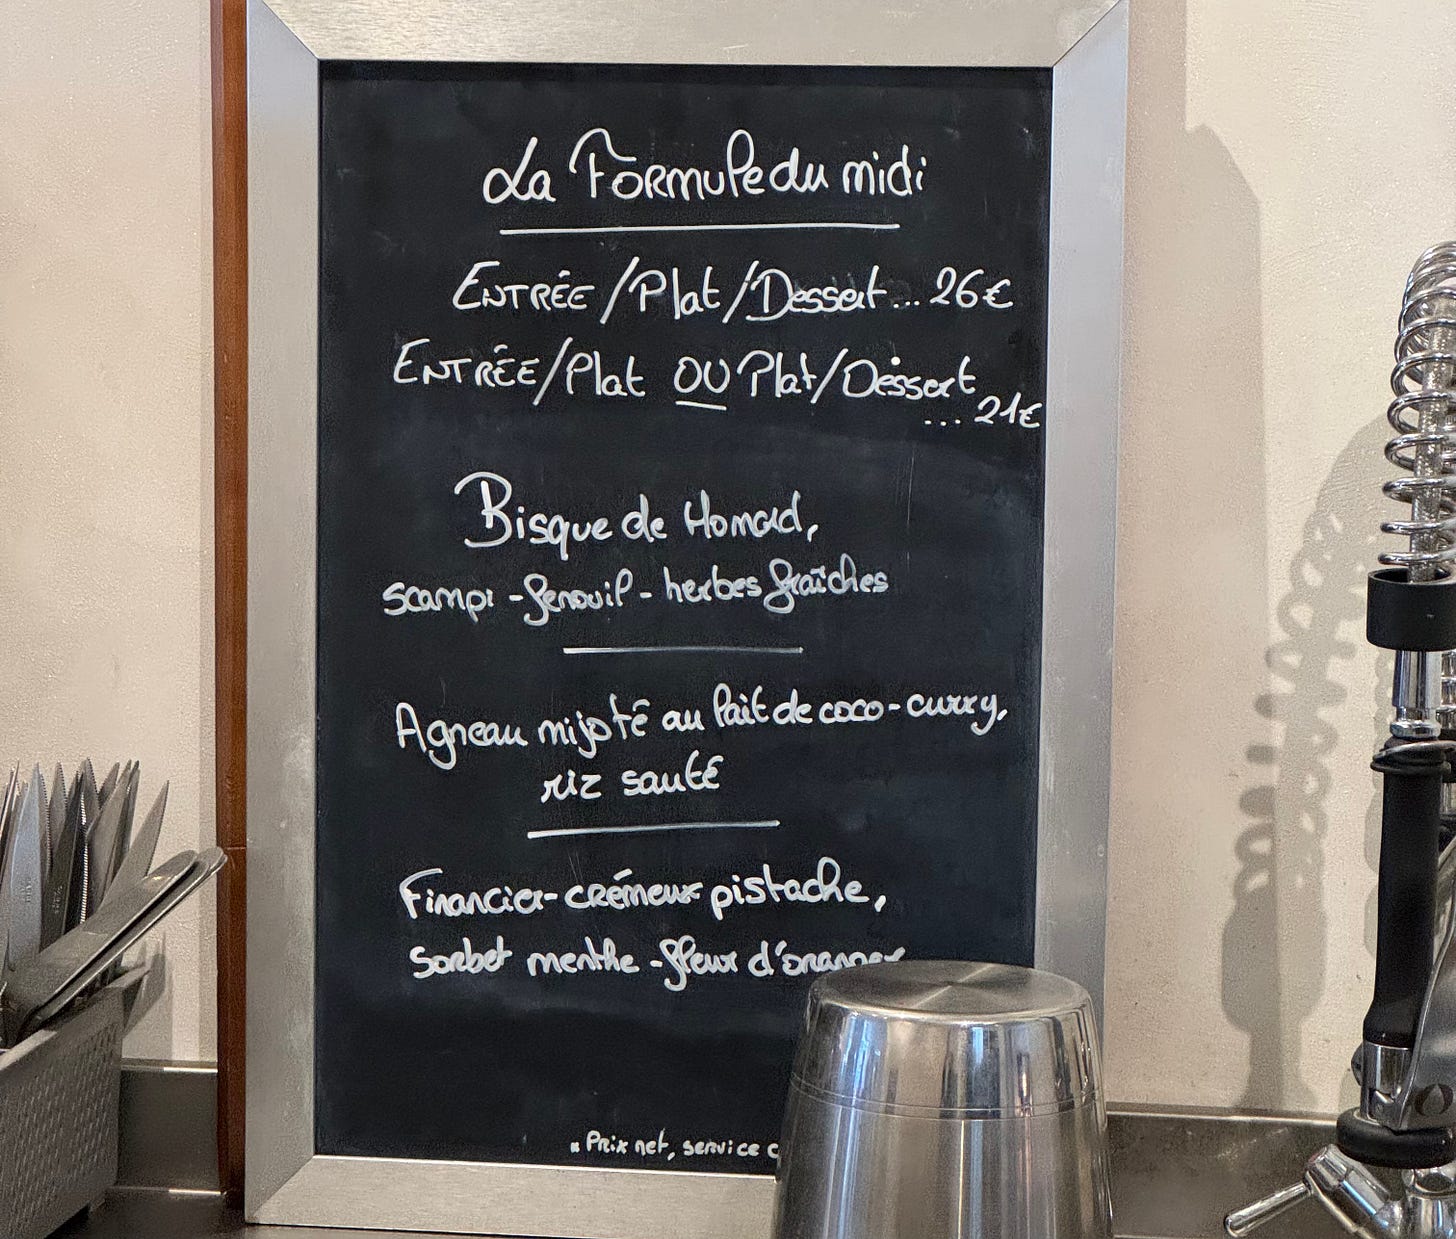 La Formule du midi
ENTRÉE/Plat/Dessert... 26€
ENTRÉE/Plat OU Plat/Dessert
... 21€
Bisque de Homard,
scampi - fenouil - herbes fraîches
Agneau mijoté au lait de coco - curry,
riz sauté
Financier - crémeux pistache,
sorbet menthe - fleur d'oranger
* Prix net, service